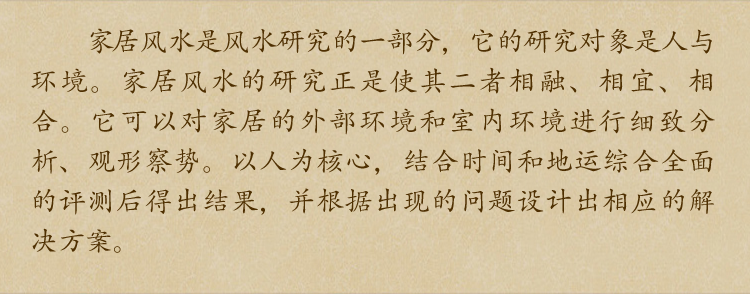 家居风水是风水研究的一部分，它的研究对象是人与
环境。家居风水的研究正是使其二者相融、相宜、相
合。它可以对家居的外部环境和室内环境进行细致分
析、观形察势。以人为核心，结合时间和地运综合全面
的评测后得出结果，并根据出现的问题设计出相应的解
决方案。